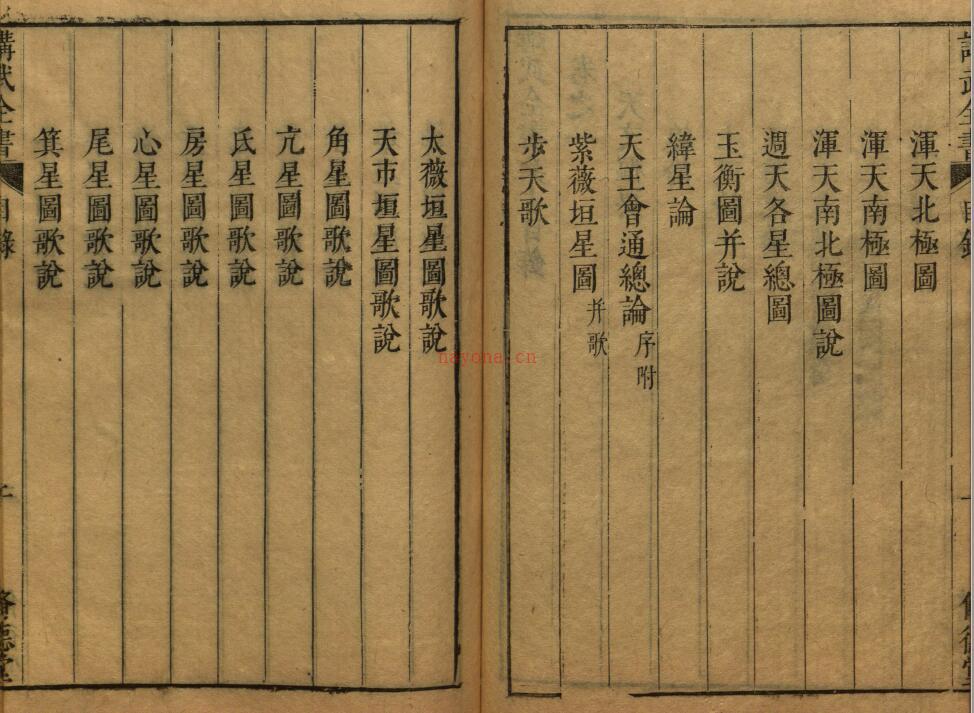 渾天北極圖
渾天南極圖
渾天南北極圖說
週天各星總圖
玉衡圖并說
緯星論
天王會通總論 序附
紫薇垣星圖 并歌
步天歌
太薇垣星圖歌說
天市垣星圖歌說
角星圖歌說
亢星圖歌說
氐星圖歌說
房星圖歌說
心星圖歌說
尾星圖歌說
箕星圖歌說
講武全書
目錄
nayona.cn